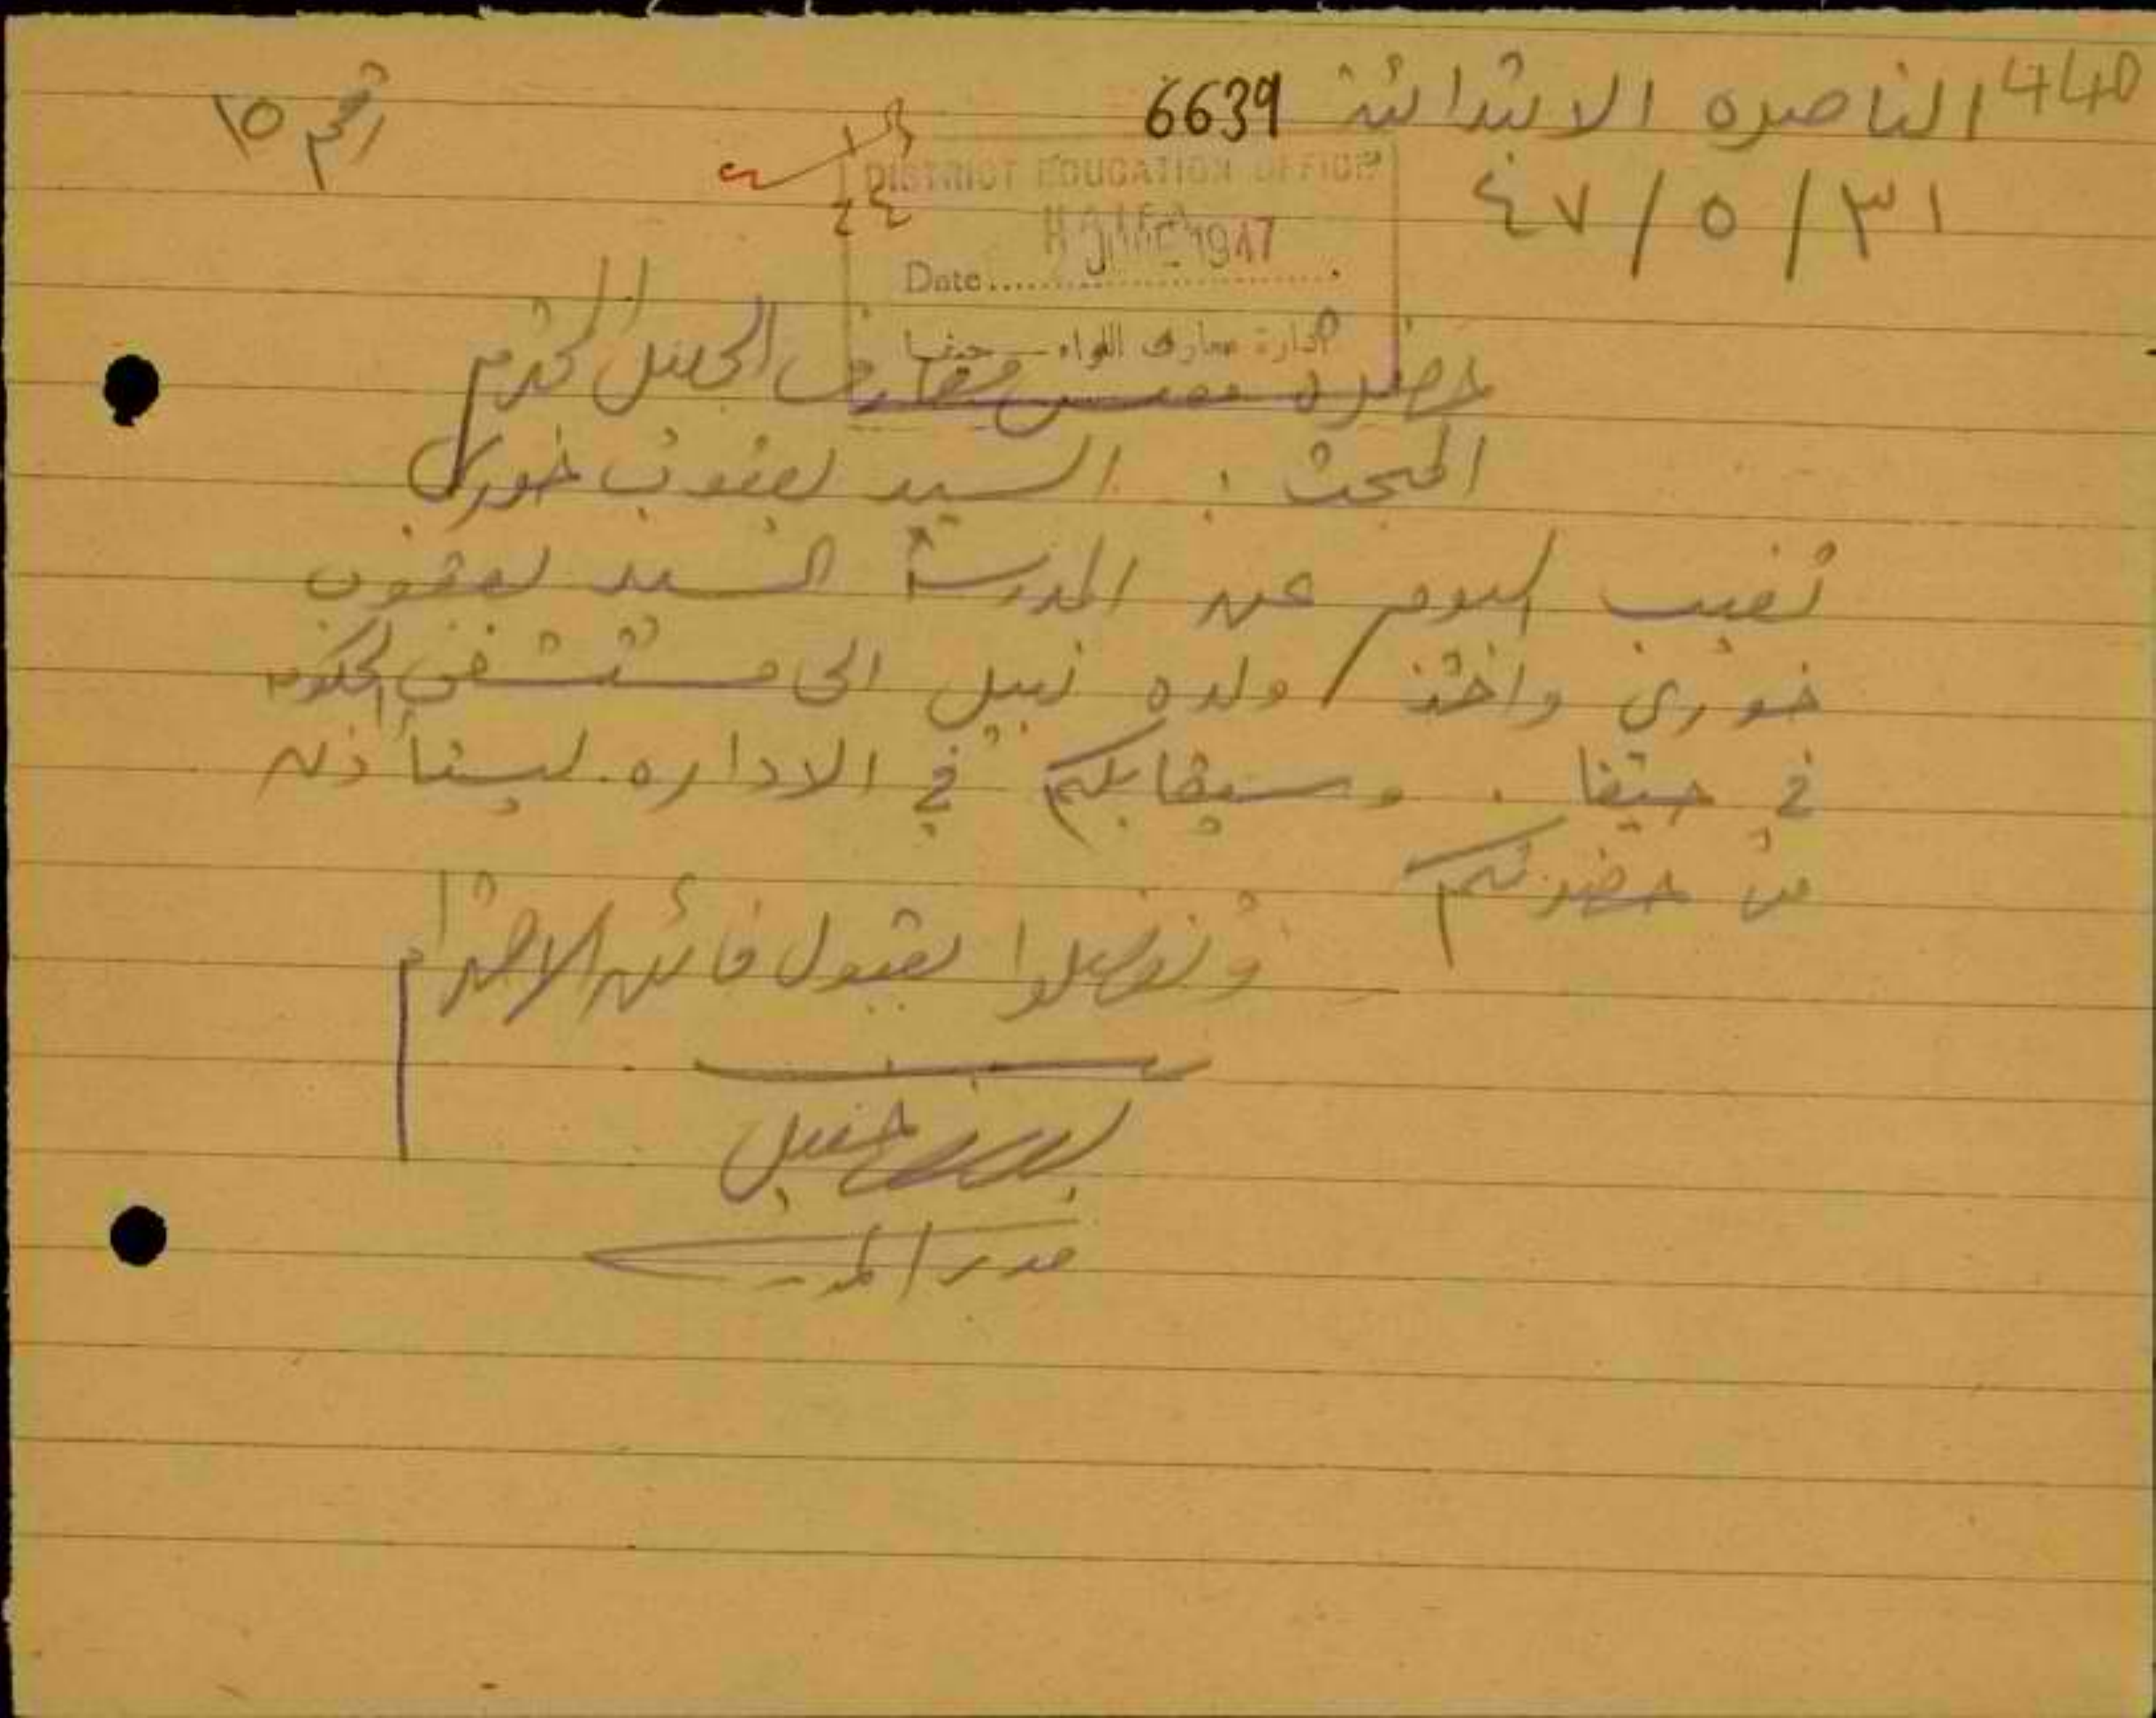 440
الناصره الابتدائية
6639
رقم ١٥
٣١ / ٥ / ٤٧
DISTRICT EDUCATION OFFICE
HAIFA
1947
Date
ادارة معارف اللواء - حيفا
حضرة مفتش معارف الجليل المحترم
المبحث : السيد يعقوب خوري
تغيب اليوم عن المدرسة السيد يعقوب
خوري واخذ ولده نبيل الى مستشفى الحكومه
في حيفا . وسيقابلكم في الاداره ليستأذن
من حضرتكم
وتفضلوا بقبول فائق الاحترام
مدير المدرسة